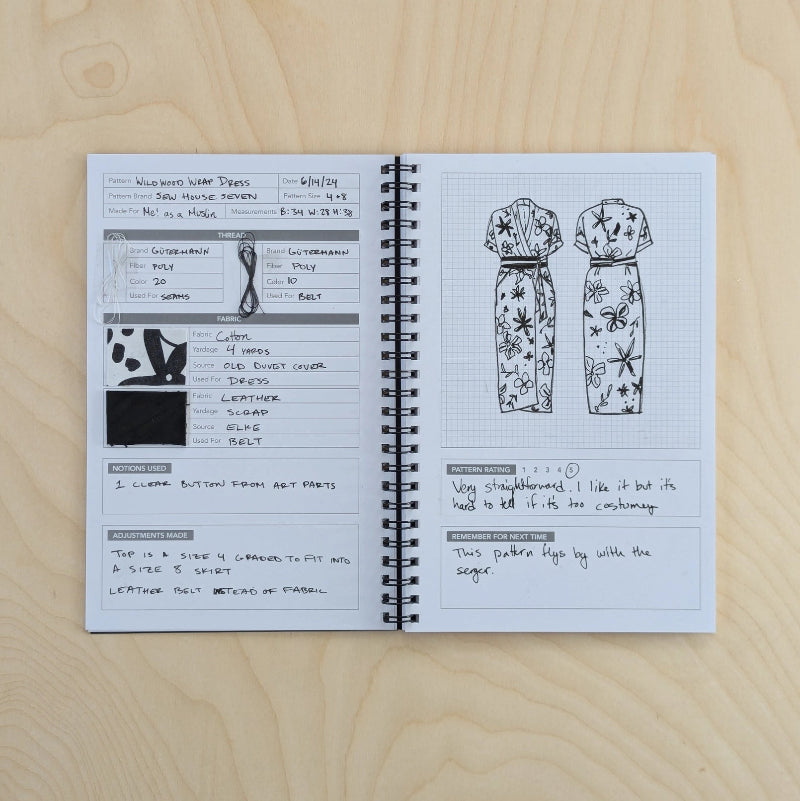 Pattern WILDWOOD WRAP DRESS Date 6/14/24
Pattern Brand SEW HOUSE SEVEN Pattern Size 4+8
Made For Me! as a Muslin Measurements B:34 W:28 H:38
THREAD
Brand GÜTERMANN Brand GÜTERMANN
Fiber POLY Fiber POLY
Color 20 Color 10
Used For SEAMS Used For BELT
FABRIC
Fabric Cotton
Yardage 4 YARDS
Source OLD DUVET COVER
Used For DRESS
Fabric LEATHER
Yardage SCRAP
Source ELKE
Used For BELT
NOTIONS USED
1 CLEAR BUTTON FROM ART PARTS
ADJUSTMENTS MADE
TOP IS A SIZE 4 GRADED TO FIT INTO
A SIZE 8 SKIRT
LEATHER BELT INSTEAD OF FABRIC
PATTERN RATING 1 2 3 4 5
Very straightforward. I like it but it's
hard to tell if it's too costumey
REMEMBER FOR NEXT TIME
This pattern flys by with the
serger.